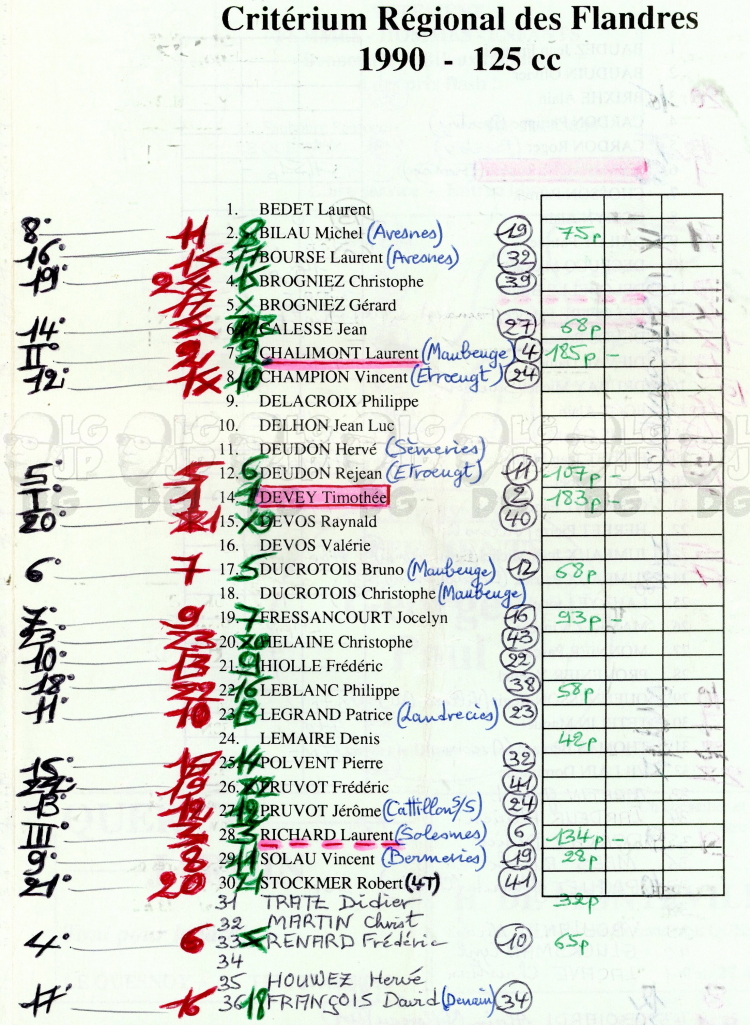 Critérium Régional des Flandres
1990 - 125 cc
1. BEDET Laurent
8° 11 2. 8 BILAU Michel (Avesnes) 19 75p
16° 15 3. 17 BOURSE Laurent (Avesnes) 32
19° 4. 15 BROGNIEZ Christophe 39
5. X BROGNIEZ Gérard
14° 6. CALESSE Jean 27 68p
II° 2 7. CHALIMONT Laurent (Maubeuge) 4 185p -
12° 8. 10 CHAMPION Vincent (Etroeungt) 24
9. DELACROIX Philippe
10. DELHON Jean Luc
11. DEUDON Hervé (Sémeries)
5° 5 12. 6 DEUDON Rejean (Etroeungt) 11 107p -
I° 1 14. 1 DEVEY Timothée 2 183p -
20° 21 15. DEVOS Raynald 40
16. DEVOS Valérie
6° 7 17. 5 DUCROTOIS Bruno (Maubeuge) 12 68p
18. DUCROTOIS Christophe (Maubeuge)
7° 9 19. 7 FRESSANCOURT Jocelyn 16 93p -
23° 23 20. HELAINE Christophe 43
10° 13 21. 9 HIOLLE Frédéric 22
18° 22 22. 16 LEBLANC Philippe 38 58p
11° 10 23. 13 LEGRAND Patrice (Landrecies) 23
24. LEMAIRE Denis 42p
15° 25. 14 POLVENT Pierre 32
22° 19 26. PRUVOT Frédéric 41
13° 12 27. 12 PRUVOT Jérôme (Catillon S/S) 24
III° 3 28. 3 RICHARD Laurent (Solesmes) 6 134p -
9° 8 29. 11 SOLAU Vincent (Bermeries) 19 28p
21° 20 30. 21 STOCKMER Robert (4T) 41
31 TRATZ Didier 32p
32 MARTIN Christ
4° 6 33 RENARD Frédéric 10 65p
34
35 HOUWEZ Hervé
17° 16 36 18 FRANÇOIS David (Denain) 34
LG JP DG